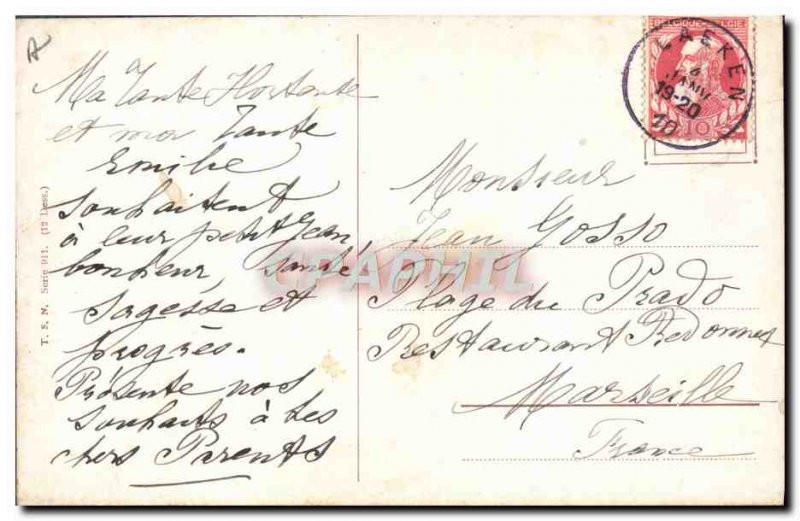 Ma Tante Hortante
et ma Tante
Emilie
souhaitent
à leur petit Jean
bonheur, santé
sagesse et
progrès.
Présente nos
souhaits à tes
chers Parents
T. S. N. Serie 911. (12 Dess.)
BELGIQUE-BELGIE
LAEKEN
4
JANV
19-20
10
10
Monsieur
Jean Gosso
Plage du Prado
Restaurant Bedonnet
Marseille
France
CPAPHIL